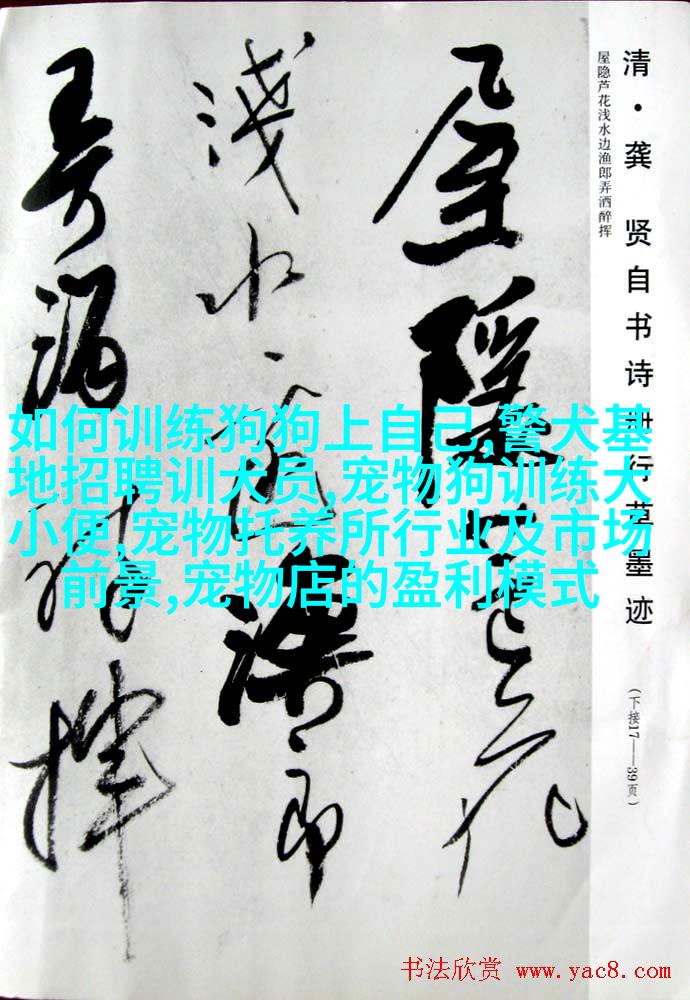 清·龚 贤自书诗册行草墨迹
屋隐芦花浅水边渔郎弄洒醉挥
(下接17——39页)
屋隱蘆花
淺水邊漁郎
弄酒醉揮
如何训练狗狗上自己,警犬基
地招聘训犬员,宠物狗训练大
小便,宠物托养所行业及市场
前景,宠物店的盈利模式
书法欣赏 www.yac8.com